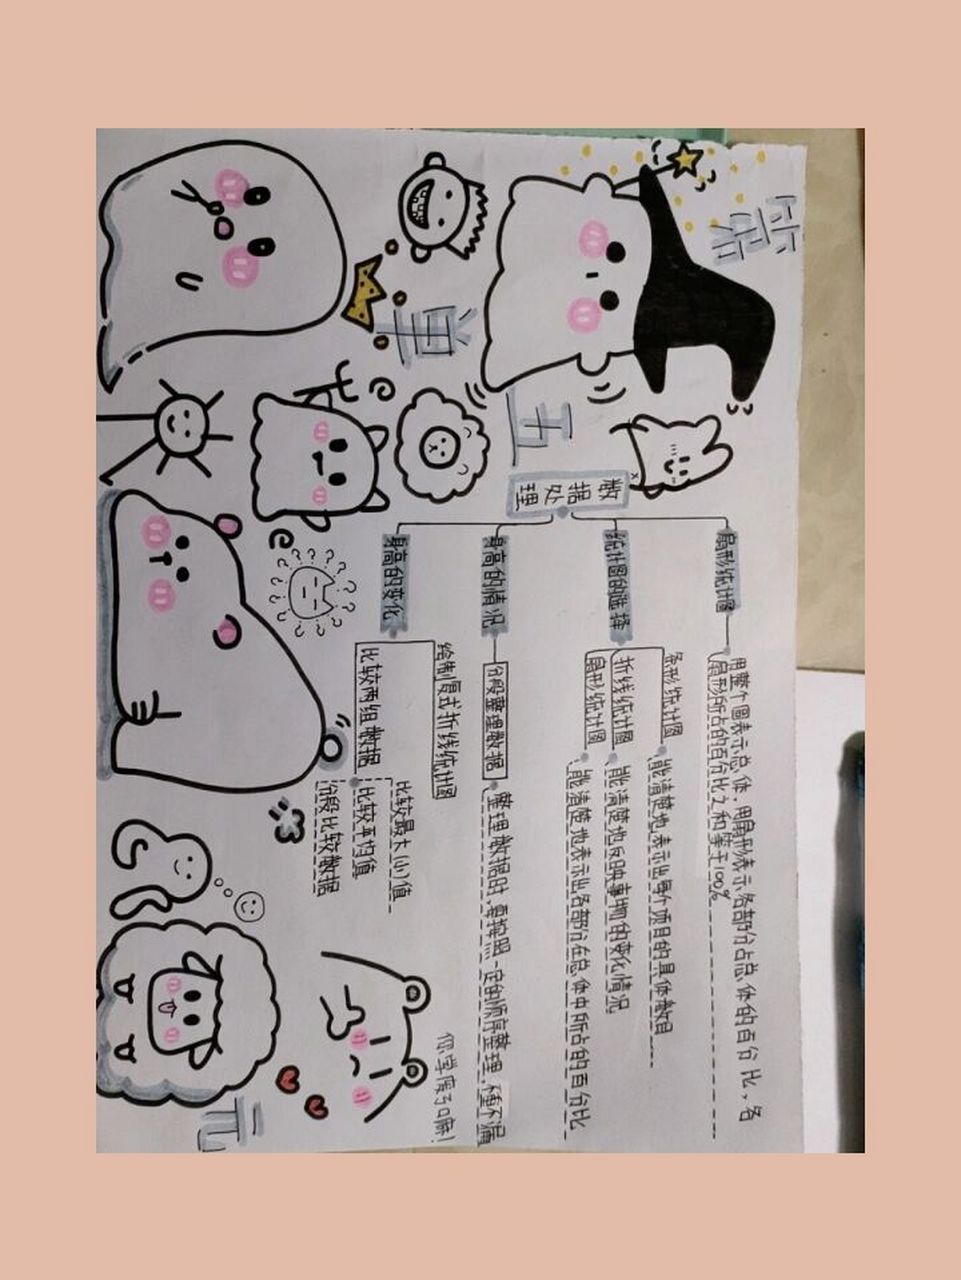 第
五
单
元
数据处理
扇形统计图
用整个圆表示总体，用扇形表示各部分占总体的百分比，各
扇形所占的百分比之和等于100%
统计图的选择
条形统计图
能清楚地表示出每个项目的具体数目
折线统计图
能清楚地反映事物的变化情况
扇形统计图
能清楚地表示出各部分在总体中所占的百分比
身高的情况
分段整理数据
整理数据时，要按照一定的顺序整理，不重不漏
身高的变化
绘制复式折线统计图
比较两组数据
比较最大(小)值
比较平均值
分段比较数据
你学废了口嘛！